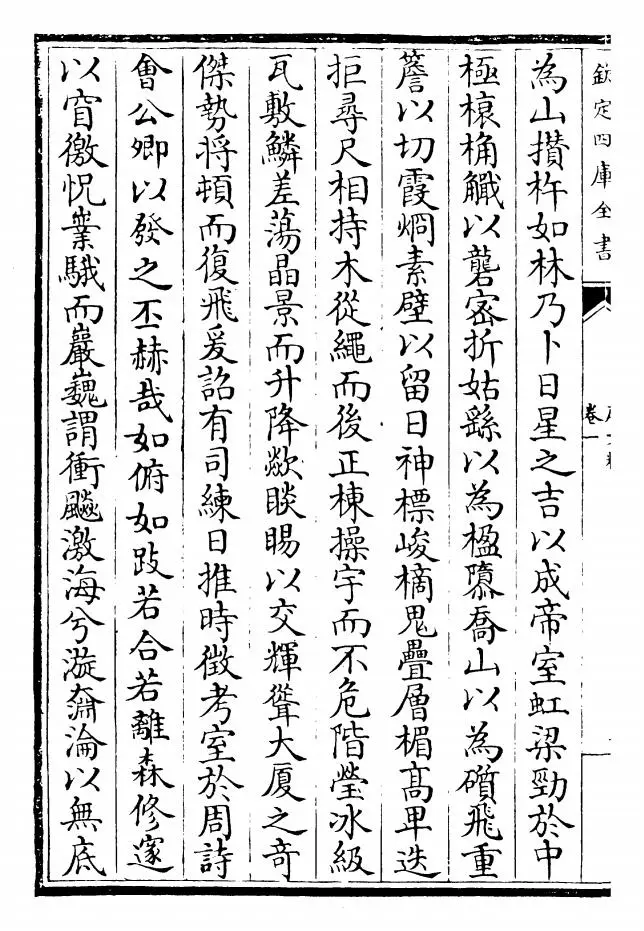 欽定四庫全書
卷一
為山攢杵如林乃卜日星之吉以成帝室虹梁勁於中
極榱桷以礱密折姑繇以為楹隳喬山以為礩飛重
簷以切霞烱素壁以留日神標峻樀鬼疊層楣高卑迭
拒尋尺相持木從繩而後正棟操宇而不危階瑩冰級
瓦敷鱗差蕩晶景而升降歘睒睗以交輝聳大厦之奇
傑勢將頓而復飛爰詔有司練日推時徵考室於周詩
會公卿以發之丕赫哉如俯如跂若合若離森修邃
以窅徼怳嶪騀而巖巍謂衝飈激海兮漩奫淪以無底